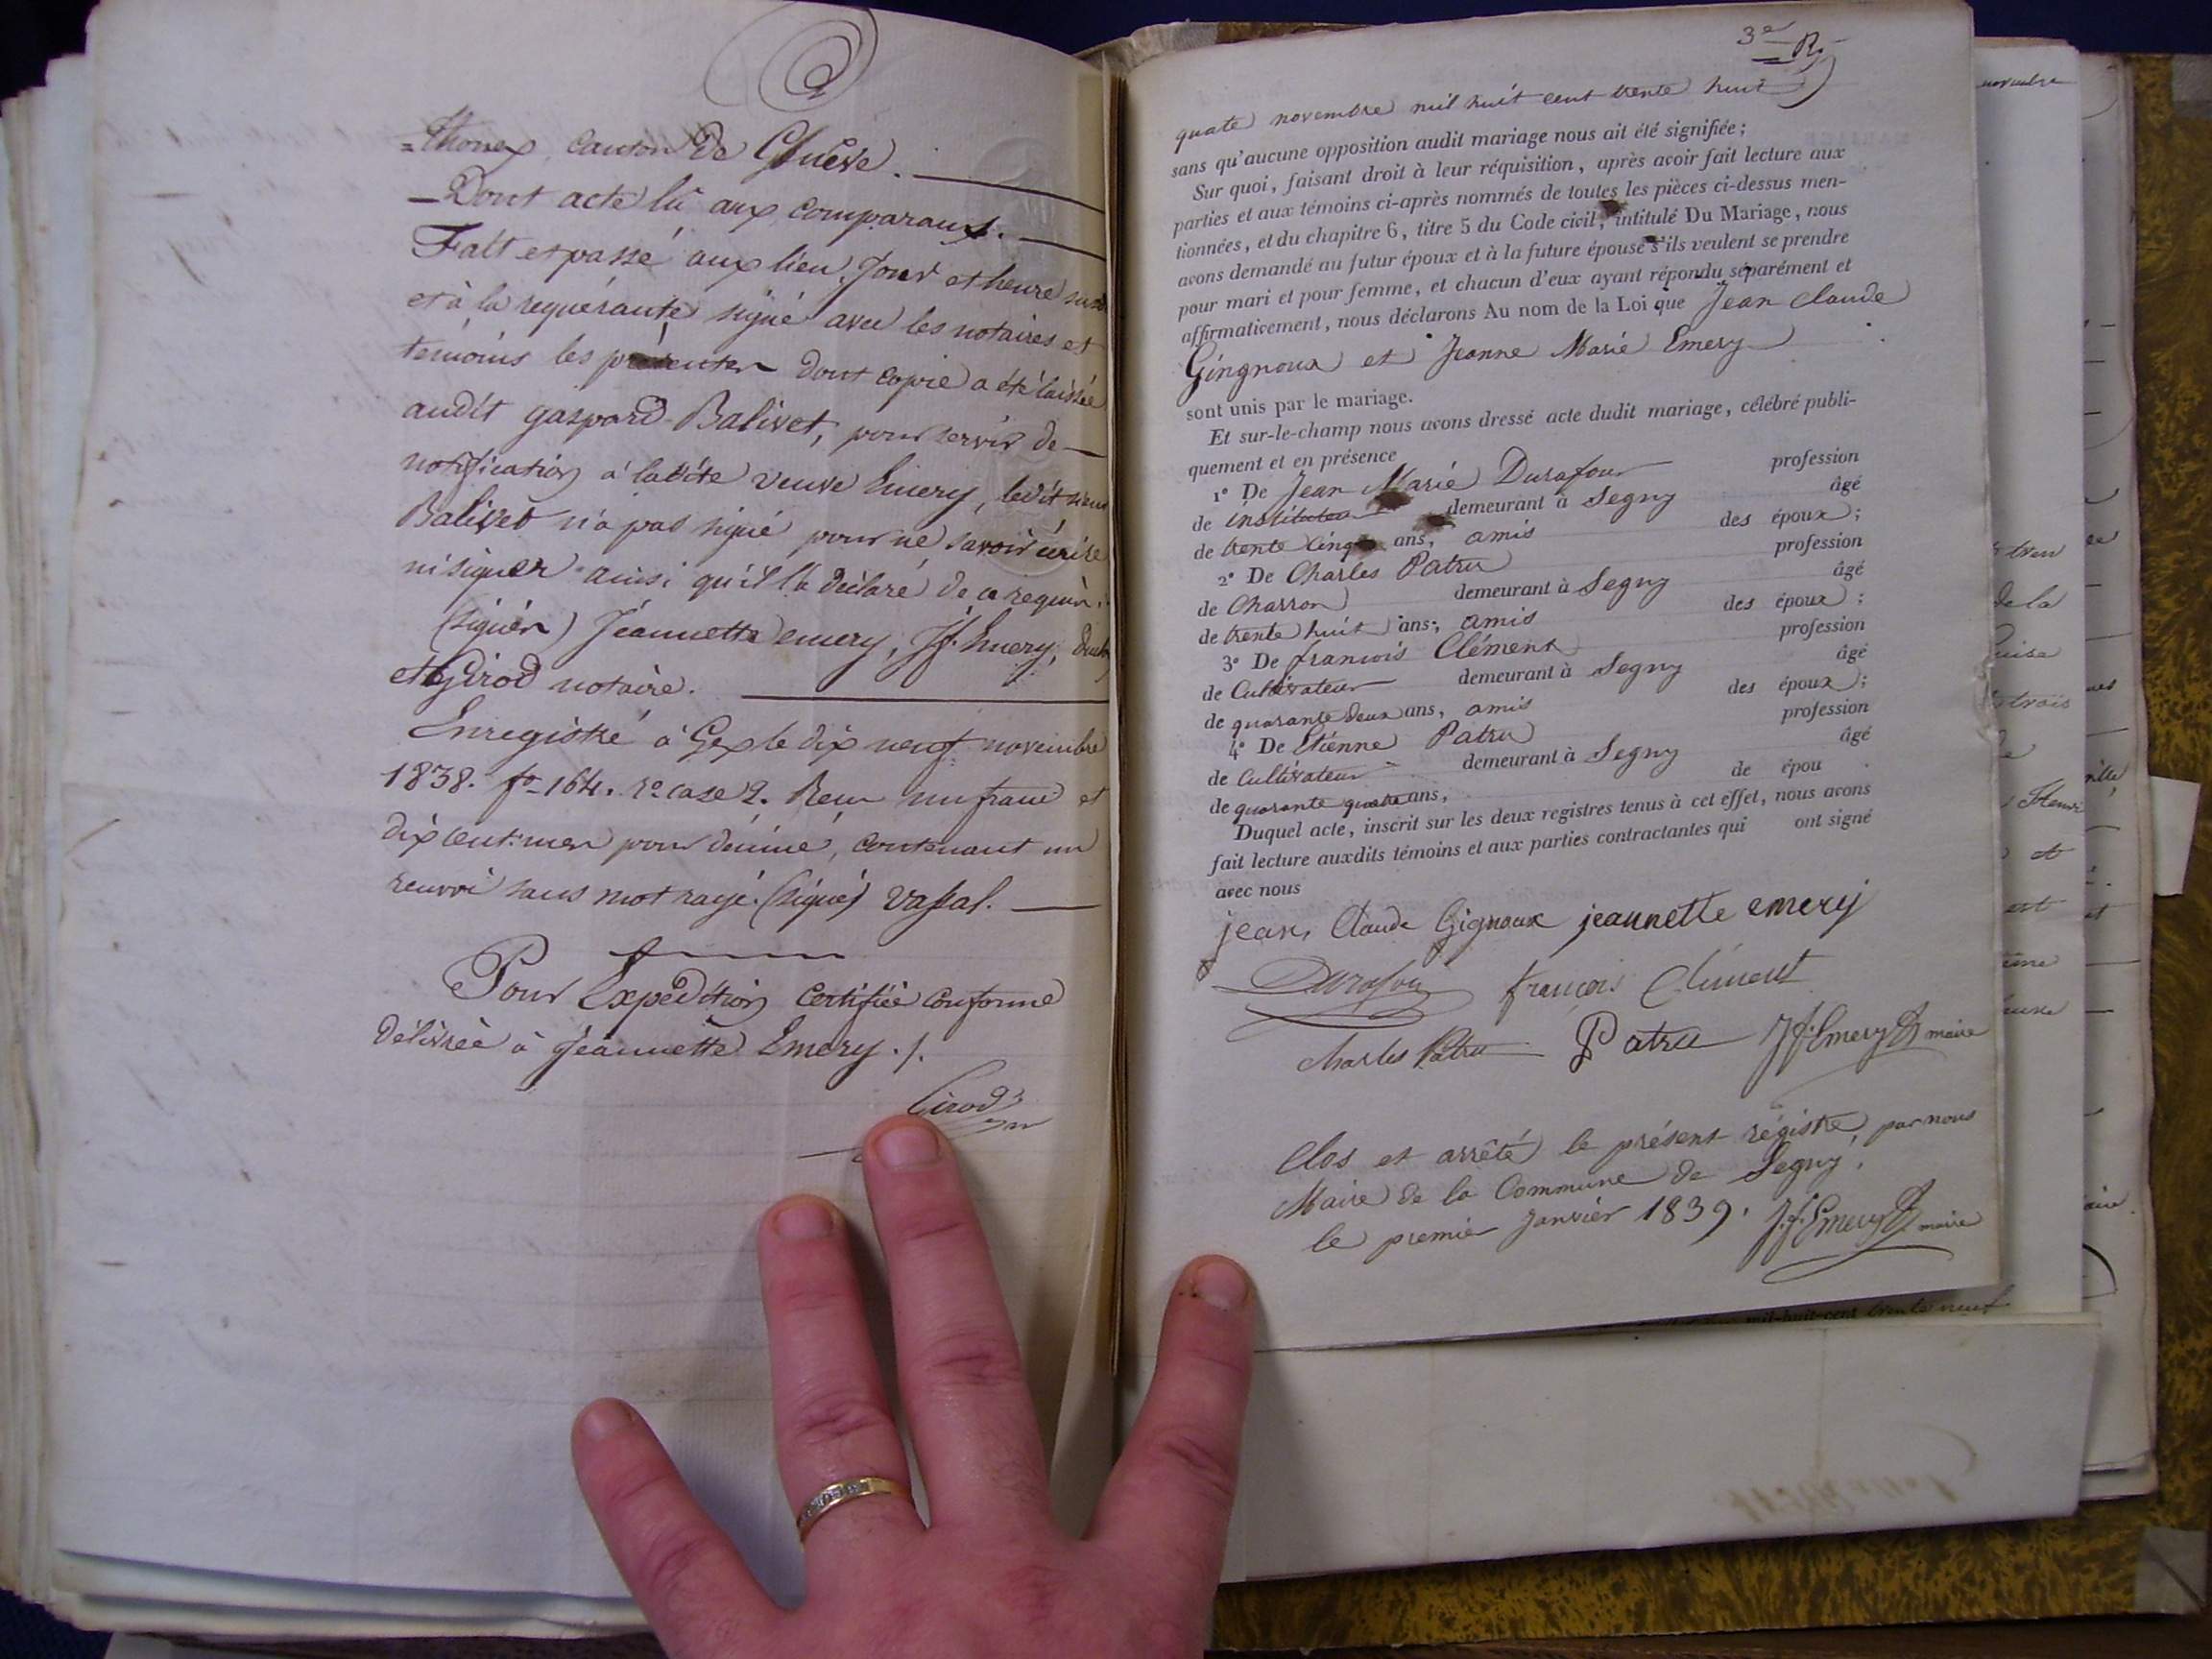 =thonex, Canton De Genève.
Dont acte lû aux comparants.
Fait et passé aux lieu, jour et heure susd
et à la requérante signé avec les notaires et
témoins les présentes dont copie a été laissée
audit gaspard Balivet, pour servir de
notification à ladite veuve Emery, ledit sieur
Balivet n'a pas signé pour ne savoir écrire
ni signer ainsi qu'il l'a déclaré de ce requis.
(signés) Jéannette emery, J.f. Emery,
et Girod notaire.
Enregistré à Gex le dix neuf novembre
1838. fo 164. ro case 2. Reçu un franc et
dix centimes pour décime, contenant un
renvoi sans mot rayé. (signé) Vassal.
Pour Expédition Certifiée conforme
délivrée à Jéannette Emery ./.
Girod
3e R.
quate novembre mil huit cent trente huit
sans qu'aucune opposition audit mariage nous ait été signifiée;
Sur quoi, faisant droit à leur réquisition, après avoir fait lecture aux
parties et aux témoins ci-après nommés de toutes les pièces ci-dessus men-
tionnées, et du chapitre 6, titre 5 du Code civil, intitulé Du Mariage, nous
avons demandé au futur époux et à la future épouse s'ils veulent se prendre
pour mari et pour femme, et chacun d'eux ayant répondu séparément et
affirmativement, nous déclarons Au nom de la Loi que Jean Claude
Gingnoux et Jeanne Marie Emery
sont unis par le mariage.
Et sur-le-champ nous avons dressé acte dudit mariage, célébré publi-
quement et en présence
1° De Jean Marie Durafour profession
de instituteur demeurant à Segny âgé
de trente Cinq ans, amis des époux;
2° De Charles Patru profession
de Charron demeurant à Segny âgé
de trente huit ans, amis des époux;
3° De francois Clément profession
de Cultivateur demeurant à Segny âgé
de quarante deux ans, amis des époux;
4° De Etienne Patru profession
de Cultivateur demeurant à Segny âgé
de quarante quatre ans, de épou
Duquel acte, inscrit sur les deux registres tenus à cet effet, nous avons
fait lecture auxdits témoins et aux parties contractantes qui ont signé
avec nous
jean Claude Gignoux jeannette emery
Durafour françois Clément
Charles Patru Patru J.f. Emery maire
Clos et arrêté le présent régistre, par nous
Maire de la Commune de Segny,
le premier janvier 1839. J.f. Emery maire
novembre
de la
trois
mil-huit-cent trente neuf